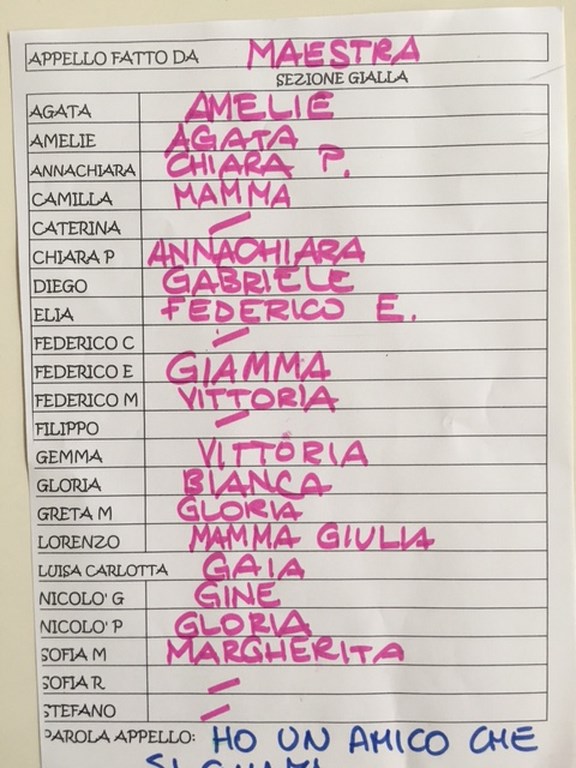 APPELLO FATTO DA MAESTRA
SEZIONE GIALLA
AGATA AMELIE
AMELIE AGATA
ANNACHIARA CHIARA P.
CAMILLA MAMMA
CATERINA /
CHIARA P ANNACHIARA
DIEGO GABRIELE
ELIA FEDERICO E.
FEDERICO C /
FEDERICO E GIAMMA
FEDERICO M VITTORIA
FILIPPO /
GEMMA VITTORIA
GLORIA BIANCA
GRETA M GLORIA
LORENZO MAMMA GIULIA
LUISA CARLOTTA GAIA
NICOLO' G GINE
NICOLO' P GLORIA
SOFIA M MARGHERITA
SOFIA R /
STEFANO /
PAROLA APPELLO: HO UN AMICO CHE
SI